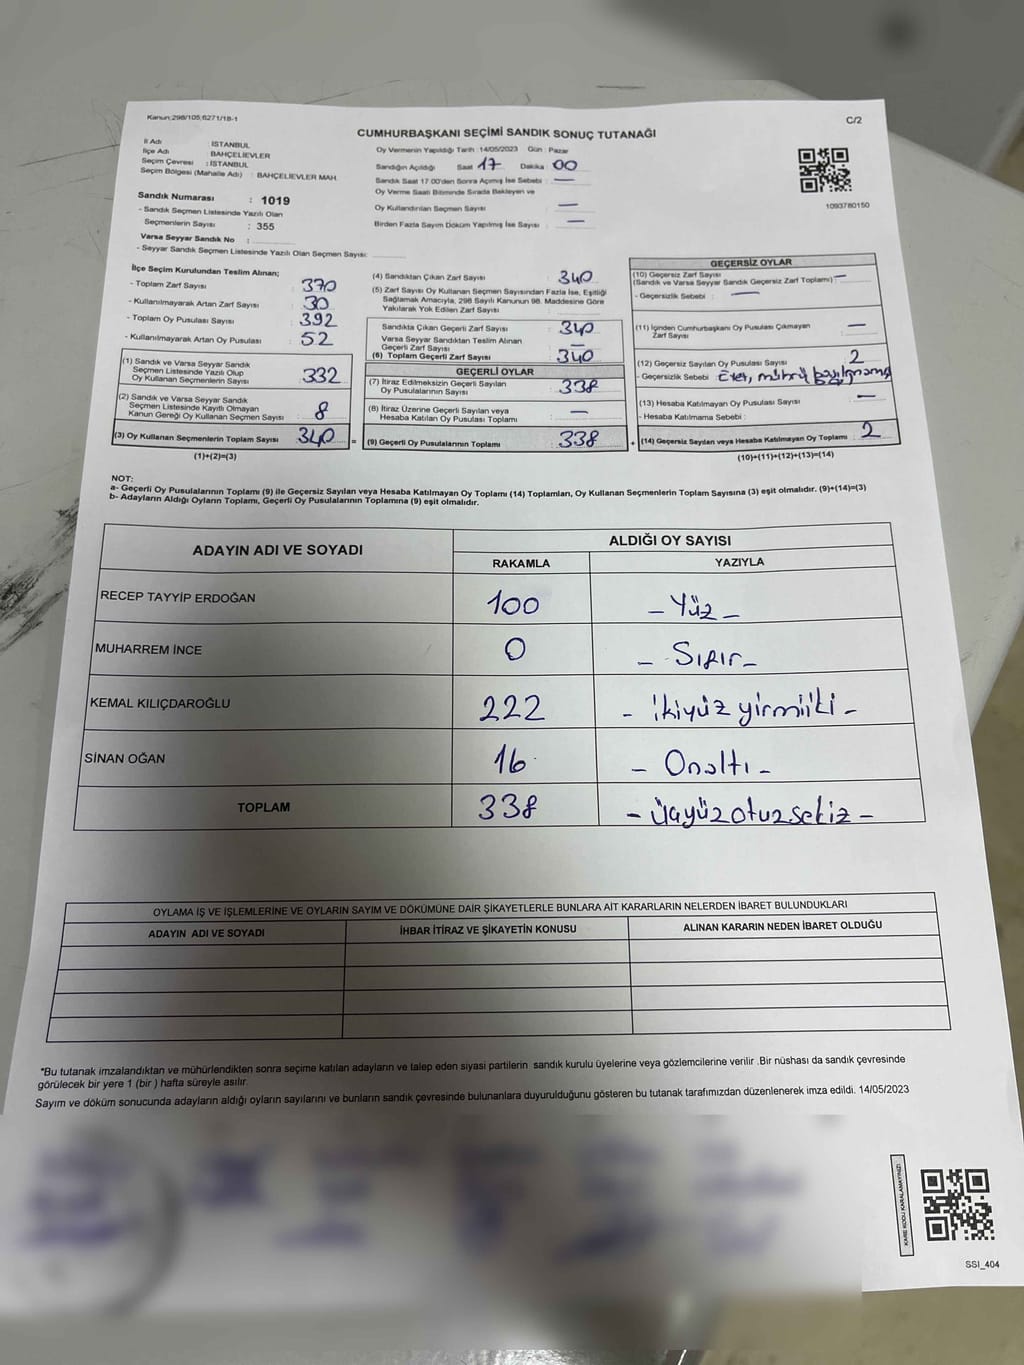 Kanun;298/105,6271/18-1
C/2
CUMHURBAŞKANI SEÇİMİ SANDIK SONUÇ TUTANAĞI
İl Adı İSTANBUL
İlçe Adı BAHÇELİEVLER
Seçim Çevresi : İSTANBUL
Seçim Bölgesi (Mahalle Adı) : BAHÇELİEVLER MAH.
Sandık Numarası : 1019
- Sandık Seçmen Listesinde Yazılı Olan
Seçmenlerin Sayısı : 355
Varsa Seyyar Sandık No :
- Seyyar Sandık Seçmen Listesinde Yazılı Olan Seçmen Sayısı:
Oy Vermenin Yapıldığı Tarih : 14/05/2023 Gün : Pazar
Sandığın Açıldığı Saat 17 Dakika 00
Sandık Saat 17:00'den Sonra Açılmış İse Sebebi : —
Oy Verme Saati Bitiminde Sırada Bekleyen ve
Oy Kullandırılan Seçmen Sayısı : —
Birden Fazla Sayım Döküm Yapılmış İse Sayısı : —
1093780150
İlçe Seçim Kurulundan Teslim Alınan;
- Toplam Zarf Sayısı : 370
- Kullanılmayarak Artan Zarf Sayısı : 30
- Toplam Oy Pusulası Sayısı : 392
- Kullanılmayarak Artan Oy Pusulası : 52
(1) Sandık ve Varsa Seyyar Sandık
Seçmen Listesinde Yazılı Olup
Oy Kullanan Seçmenlerin Sayısı : 332
(2) Sandık ve Varsa Seyyar Sandık
Seçmen Listesinde Kayıtlı Olmayan
Kanun Gereği Oy Kullanan Seçmen Sayısı : 8
(3) Oy Kullanan Seçmenlerin Toplam Sayısı : 340 =
(1)+(2)=(3)
(4) Sandıktan Çıkan Zarf Sayısı : 340
(5) Zarf Sayısı Oy Kullanan Seçmen Sayısından Fazla İse, Eşitliği
Sağlamak Amacıyla, 298 Sayılı Kanunun 98. Maddesine Göre
Yakılarak Yok Edilen Zarf Sayısı :
Sandıkta Çıkan Geçerli Zarf Sayısı : 340
Varsa Seyyar Sandıktan Teslim Alınan
Geçerli Zarf Sayısı : —
(6) Toplam Geçerli Zarf Sayısı : 340
GEÇERLİ OYLAR
(7) İtiraz Edilmeksizin Geçerli Sayılan
Oy Pusulalarının Sayısı : 338
(8) İtiraz Üzerine Geçerli Sayılan veya
Hesaba Katılan Oy Pusulası Toplamı : —
(9) Geçerli Oy Pusulalarının Toplamı : 338 +
GEÇERSİZ OYLAR
(10) Geçersiz Zarf Sayısı
(Sandık ve Varsa Seyyar Sandık Geçersiz Zarf Toplamı) : —
- Geçersizlik Sebebi : —
(11) İçinden Cumhurbaşkanı Oy Pusulası Çıkmayan
Zarf Sayısı : —
(12) Geçersiz Sayılan Oy Pusulası Sayısı : 2
- Geçersizlik Sebebi Evet, mührü basılmamış
(13) Hesaba Katılmayan Oy Pusulası Sayısı : —
- Hesaba Katılmama Sebebi :
(14) Geçersiz Sayılan veya Hesaba Katılmayan Oy Toplamı : 2
(10)+(11)+(12)+(13)=(14)
NOT:
a- Geçerli Oy Pusulalarının Toplamı (9) ile Geçersiz Sayılan veya Hesaba Katılmayan Oy Toplamı (14) Toplamları, Oy Kullanan Seçmenlerin Toplam Sayısına (3) eşit olmalıdır. (9)+(14)=(3)
b- Adayların Aldığı Oyların Toplamı, Geçerli Oy Pusulalarının Toplamına (9) eşit olmalıdır.
ADAYIN ADI VE SOYADI
ALDIĞI OY SAYISI
RAKAMLA YAZIYLA
RECEP TAYYİP ERDOĞAN 100 – Yüz –
MUHARREM İNCE 0 – Sıfır –
KEMAL KILIÇDAROĞLU 222 – ikiyüz yirmiiki –
SİNAN OĞAN 16 – Onaltı –
TOPLAM 338 – Üçyüzotuzsekiz –
OYLAMA İŞ VE İŞLEMLERİNE VE OYLARIN SAYIM VE DÖKÜMÜNE DAİR ŞİKAYETLERLE BUNLARA AİT KARARLARIN NELERDEN İBARET BULUNDUKLARI
ADAYIN ADI VE SOYADI İHBAR İTİRAZ VE ŞİKAYETİN KONUSU ALINAN KARARIN NEDEN İBARET OLDUĞU
*Bu tutanak imzalandıktan ve mühürlendikten sonra seçime katılan adayların ve talep eden siyasi partilerin sandık kurulu üyelerine veya gözlemcilerine verilir .Bir nüshası da sandık çevresinde
görülecek bir yere 1 (bir ) hafta süreyle asılır.
Sayım ve döküm sonucunda adayların aldığı oyların sayılarını ve bunların sandık çevresinde bulunanlara duyurulduğunu gösteren bu tutanak tarafımızdan düzenlenerek imza edildi. 14/05/2023
KARE KODU KARALAMAYINIZ!
SSI_404